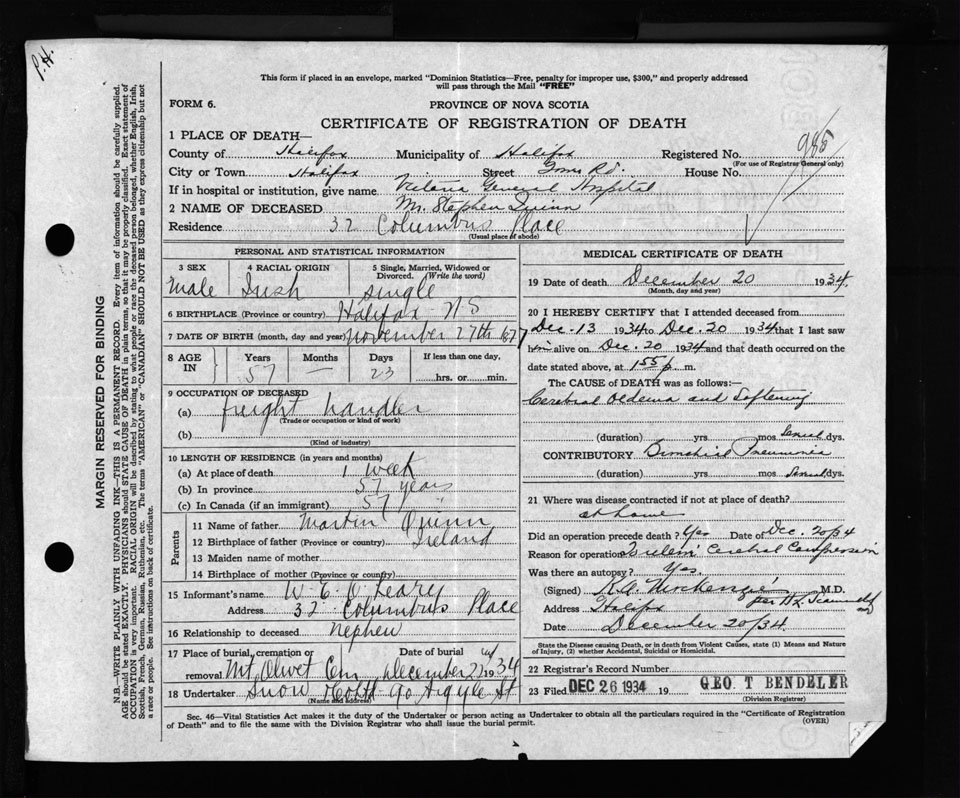 P.H.
This form if placed in an envelope, marked "Dominion Statistics—Free, penalty for improper use, $300," and properly addressed
will pass through the Mail "FREE"
FORM 6.
PROVINCE OF NOVA SCOTIA
CERTIFICATE OF REGISTRATION OF DEATH
1 PLACE OF DEATH—
County of Halifax Municipality of Halifax Registered No. 985
(For use of Registrar General only)
City or Town Halifax Street House No.
If in hospital or institution, give name Victoria General Hospital
2 NAME OF DECEASED Mr. Stephen Quinn
Residence 32 Columbus Place
(Usual place of abode)
PERSONAL AND STATISTICAL INFORMATION
3 SEX 4 RACIAL ORIGIN 5 Single, Married, Widowed or Divorced. (Write the word)
male Irish single
6 BIRTHPLACE (Province or country) Halifax N S
7 DATE OF BIRTH (month, day and year) November 27th 1877
8 AGE IN Years Months Days If less than one day,
57 — 23 hrs. or min.
9 OCCUPATION OF DECEASED
(a) freight handler
(Trade or occupation or kind of work)
(b)
(Kind of industry)
10 LENGTH OF RESIDENCE (in years and months)
(a) At place of death 1 week
(b) In province 57 years
(c) In Canada (if an immigrant) 57 "
Parents
11 Name of father Martin Quinn
12 Birthplace of father (Province or country) Ireland
13 Maiden name of mother
14 Birthplace of mother (Province or country)
15 Informant's name W. E. O'Leary
Address 32 Columbus Place
16 Relationship to deceased Nephew
17 Place of burial, cremation or removal Date of burial
Mt Olivet Cem December 1934
18 Undertaker Snow 90 Argyle St
(Name and address)
MEDICAL CERTIFICATE OF DEATH
19 Date of death December 20 1934
(Month, day and year)
20 I HEREBY CERTIFY that I attended deceased from
Dec. 13 1934 to Dec. 20 1934 that I last saw
him alive on Dec. 20 1934 and that death occurred on the
date stated above, at 155 p. m.
The CAUSE of DEATH was as follows:—
Cerebral Oedema and Softening
(duration) yrs mos Several dys.
CONTRIBUTORY Bronchial Pneumonia
(duration) yrs mos Several dys.
21 Where was disease contracted if not at place of death?
at home
Did an operation precede death? Yes Date of Dec. 20/34
Reason for operation Cerebral Compression
Was there an autopsy? Yes.
(Signed) M.D.
Address Halifax
Date December 20/34.
State the Disease causing Death, or in death from Violent Causes, state (1) Means and Nature
of Injury, (2) whether Accidental, Suicidal or Homicidal.
22 Registrar's Record Number
23 Filed DEC 26 1934 19 GEO. T BENDELER
(Division Registrar)
Sec. 46—Vital Statistics Act makes it the duty of the Undertaker or person acting as Undertaker to obtain all the particulars required in the "Certificate of Registration
of Death" and to file the same with the Division Registrar who shall issue the burial permit. (OVER)
MARGIN RESERVED FOR BINDING
N.B.—WRITE PLAINLY WITH UNFADING INK—THIS IS A PERMANENT RECORD. Every item of information should be carefully supplied.
AGE should be stated EXACTLY. PHYSICIANS should STATE CAUSE OF DEATH in plain terms, so that it may be properly classified. Exact statement of
OCCUPATION is very important. RACIAL ORIGIN will be described by stating to what people or race the deceased person belonged, whether English, Irish,
Scottish, French, German, Russian, Ruthenian, etc. The terms "AMERICAN" or "CANADIAN" SHOULD NOT BE USED as they express citizenship but not
a race or people. See instructions on back of certificate.